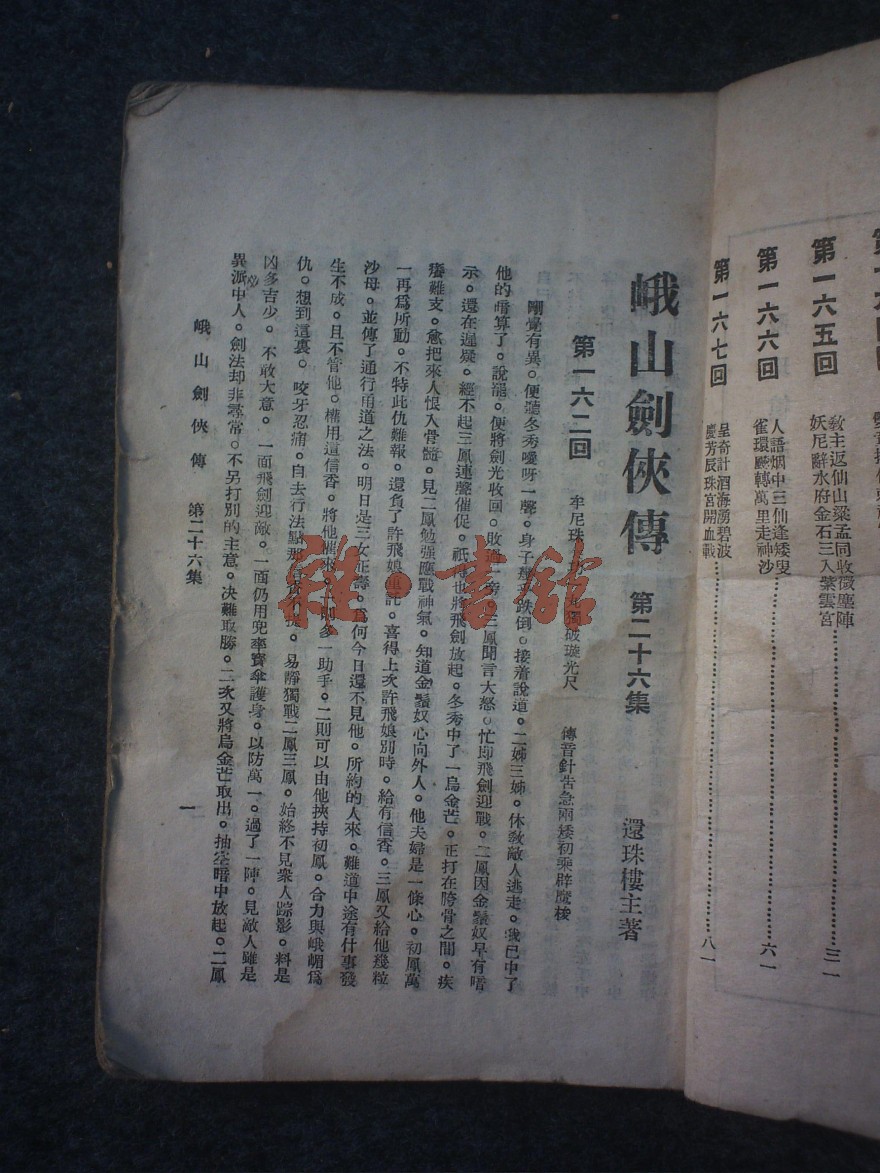 第一六五回
教主返仙山梁孟同收微塵陣
妖尼辭水府金石三入紫雲宮
三一
第一六六回
人語烟中三仙逢矮叟
雀環飇轉萬里走神沙
六一
第一六七回
呈奇計泗海湧碧波
慶芳辰珠宮開血戰
八一
峨山劍俠傳 第二十六集 還珠樓主著
第一六二回 牟尼珠 丸獨破璇光尺 傳音針告急兩矮初乘辟魔梭
剛覺有異。便聽冬秀噯呀一聲。身子 跌倒。接着說道。二姊三姊。休敎敵人逃走。我已中了
他的暗算了。說罷。便將劍光收回。敗 一旁。三鳳聞言大怒。忙即飛劍迎戰。二鳳因金鬚奴早有暗
示。還在遲疑。經不起三鳳連聲催促。祇得也將飛劍放起。冬秀中了一烏金芒。正打在胯骨之間。疾
痛難支。愈把來人恨入骨髓。見二鳳勉强應戰神氣。知道金鬚奴心向外人。他夫婦是一條心。初鳳萬
一再爲所動。不特此仇難報。還負了許飛娘重託。喜得上次許飛娘別時。給有信香。三鳳又給他幾粒
沙母。並傳了通行甬道之法。明日是三女正壽。爲何今日還不見他。所約的人來。難道中途有什事發
生不成。且不管他。權用這信香。將他催來。 則多一助手。二則可以由他挾持初鳳。合力與峨嵋爲
仇。想到這裏。咬牙忍痛。自去行法點那信香不提。易靜獨戰二鳳三鳳。始終不見衆人踪影。料是
凶多吉少。不敢大意。一面飛劍迎敵。一面仍用兜率寶傘護身。以防萬一。過了一陣。見敵人雖是
異派中人。劍法却非尋常。不另打別的主意。决難取勝。二次又將烏金芒取出。抽空暗中放起。二鳳
峨山劍俠傳 第二十六集
一
雜·書館